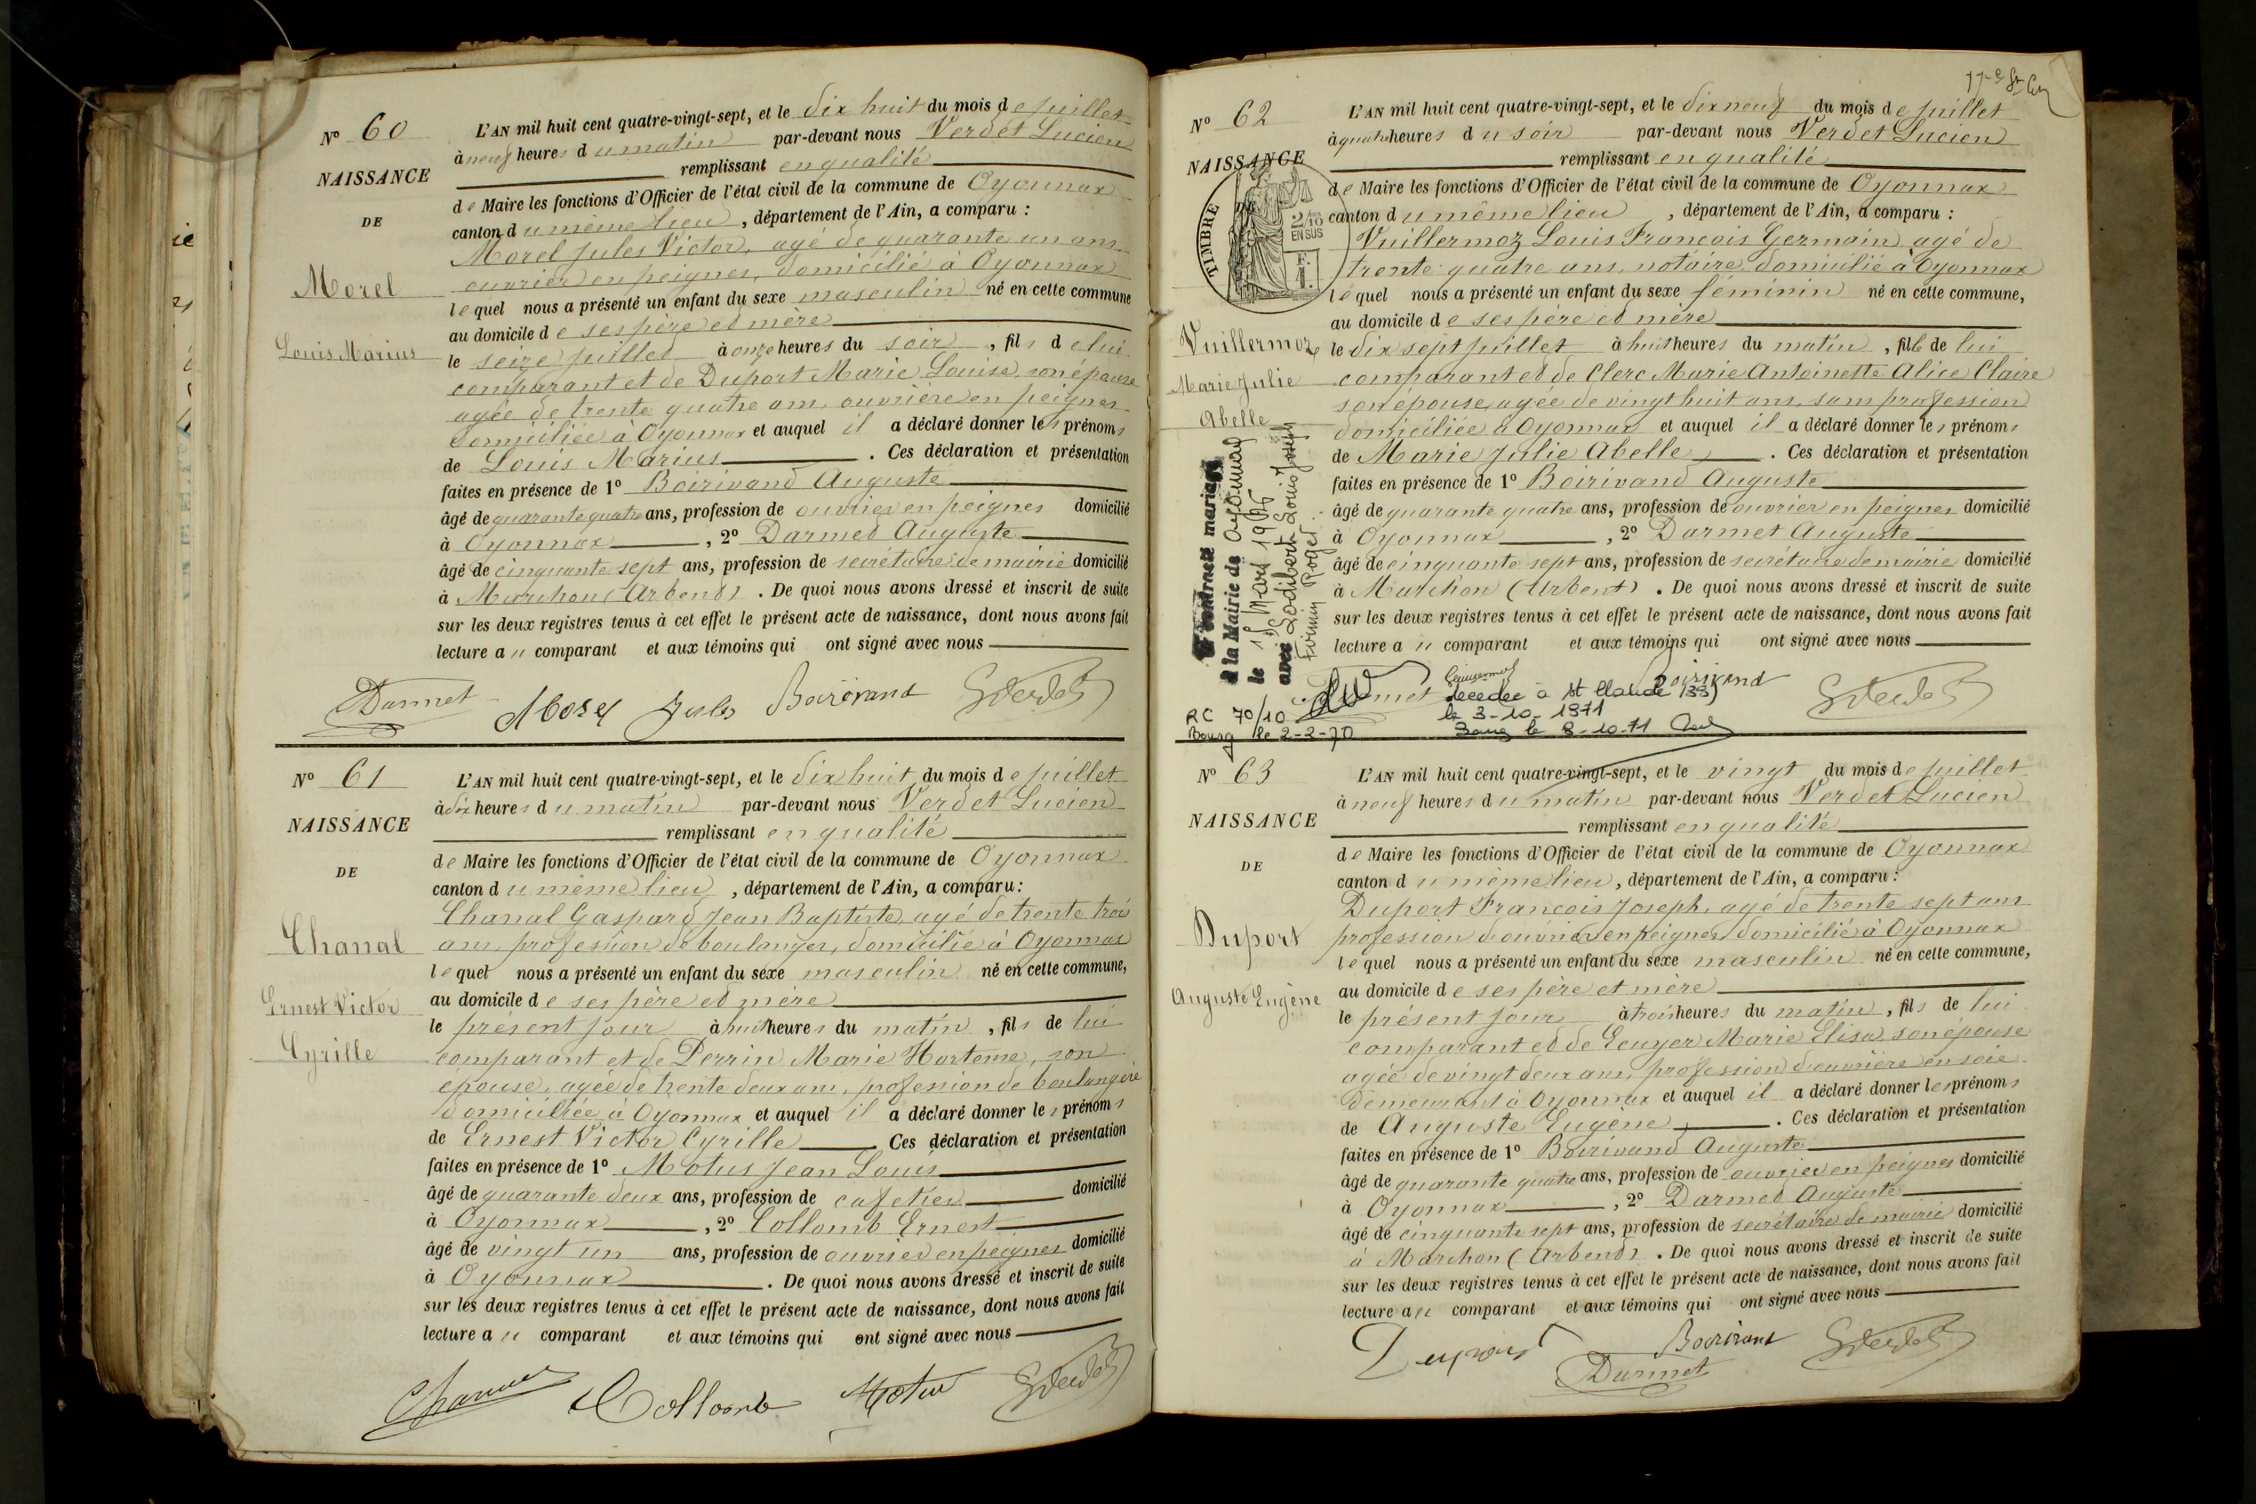 N° 60
NAISSANCE
DE
Morel
Louis Marius
L'AN mil huit cent quatre-vingt-sept, et le dix huit du mois de juillet
à neuf heures du matin par-devant nous Verdet Lucien
remplissant en qualité
de Maire les fonctions d'Officier de l'état civil de la commune de Oyonnax
canton du même lieu, département de l'Ain, a comparu :
Morel Jules Victor, agé de quarante un ans
ouvrier en peignes, domicilié à Oyonnax
lequel nous a présenté un enfant du sexe masculin né en cette commune
au domicile de ses père et mère
le seize juillet à onze heures du soir, fils de lui
comparant et de Duport Marie Louise son épouse
agée de trente quatre ans, ouvrière en peignes
domiciliée à Oyonnax et auquel il a déclaré donner les prénoms
de Louis Marius. Ces déclaration et présentation
faites en présence de 1° Boirivand Auguste
âgé de quarante quatre ans, profession de ouvrier en peignes domicilié
à Oyonnax, 2° Darmet Auguste
âgé de cinquante sept ans, profession de secrétaire de mairie domicilié
à Marchon (Arbent). De quoi nous avons dressé et inscrit de suite
sur les deux registres tenus à cet effet le présent acte de naissance, dont nous avons fait
lecture au comparant et aux témoins qui ont signé avec nous
Darmet Morel Jules Boirivand Verdet
N° 61
NAISSANCE
DE
Chanal
Ernest Victor
Cyrille
L'AN mil huit cent quatre-vingt-sept, et le dix huit du mois de juillet
à dix heures du matin par-devant nous Verdet Lucien
remplissant en qualité
de Maire les fonctions d'Officier de l'état civil de la commune de Oyonnax
canton du même lieu, département de l'Ain, a comparu :
Chanal Gaspard Jean Baptiste, agé de trente trois
ans, profession de boulanger, domicilié à Oyonnax
lequel nous a présenté un enfant du sexe masculin né en cette commune,
au domicile de ses père et mère
le présent jour à huit heures du matin, fils de lui
comparant et de Perrin Marie Hortense, son
épouse, agée de trente deux ans, profession de boulangère
domiciliée à Oyonnax et auquel il a déclaré donner les prénoms
de Ernest Victor Cyrille. Ces déclaration et présentation
faites en présence de 1° Motus Jean Louis
âgé de quarante deux ans, profession de cafetier domicilié
à Oyonnax, 2° Collomb Ernest
âgé de vingt un ans, profession de ouvrier en peignes domicilié
à Oyonnax. De quoi nous avons dressé et inscrit de suite
sur les deux registres tenus à cet effet le présent acte de naissance, dont nous avons fait
lecture au comparant et aux témoins qui ont signé avec nous
Chanal Collomb Motus Verdet
N° 62
NAISSANCE
DE
TIMBRE
2/10 EN SUS
Vuillermoz
Marie Julie
Abelle
A contracté mariage
à la Mairie de Oyonnax
le 15 Mars 19
avec Lodibert Louis Joseph
Firmin Roger
L'AN mil huit cent quatre-vingt-sept, et le dix neuf du mois de juillet
à quatre heures du soir par-devant nous Verdet Lucien
remplissant en qualité
de Maire les fonctions d'Officier de l'état civil de la commune de Oyonnax
canton du même lieu, département de l'Ain, a comparu :
Vuillermoz Louis François Germain agé de
trente quatre ans, notaire, domicilié à Oyonnax
lequel nous a présenté un enfant du sexe féminin né en cette commune,
au domicile de ses père et mère
le dix sept juillet à huit heures du matin, fille de lui
comparant et de Clerc Marie Antoinette Alice Claire
son épouse, agée de vingt huit ans, sans profession
domiciliée à Oyonnax et auquel il a déclaré donner les prénoms
de Marie Julie Abelle. Ces déclaration et présentation
faites en présence de 1° Boirivand Auguste
âgé de quarante quatre ans, profession de ouvrier en peignes domicilié
à Oyonnax, 2° Darmet Auguste
âgé de cinquante sept ans, profession de secrétaire de mairie domicilié
à Marchon (Arbent). De quoi nous avons dressé et inscrit de suite
sur les deux registres tenus à cet effet le présent acte de naissance, dont nous avons fait
lecture au comparant et aux témoins qui ont signé avec nous
Boirivand Verdet
décédée à St Claude (39)
le 3-10-1971
Bourg le 8-10-71
RC 70/10
Bourg le 2-2-70
N° 63
NAISSANCE
DE
Duport
Auguste Eugène
L'AN mil huit cent quatre-vingt-sept, et le vingt du mois de juillet
à neuf heures du matin par-devant nous Verdet Lucien
remplissant en qualité
de Maire les fonctions d'Officier de l'état civil de la commune de Oyonnax
canton du même lieu, département de l'Ain, a comparu :
Duport François Joseph, agé de trente sept ans
profession d'ouvrier en peignes, domicilié à Oyonnax
lequel nous a présenté un enfant du sexe masculin né en cette commune,
au domicile de ses père et mère
le présent jour à trois heures du matin, fils de lui
comparant et de Ecuyer Marie Elisa, son épouse
agée de vingt deux ans, profession d'ouvrière en soie
demeurant à Oyonnax et auquel il a déclaré donner les prénoms
de Auguste Eugène. Ces déclaration et présentation
faites en présence de 1° Boirivand Auguste
âgé de quarante quatre ans, profession de ouvrier en peignes domicilié
à Oyonnax, 2° Darmet Auguste
âgé de cinquante sept ans, profession de secrétaire de mairie domicilié
à Marchon (Arbent). De quoi nous avons dressé et inscrit de suite
sur les deux registres tenus à cet effet le présent acte de naissance, dont nous avons fait
lecture au comparant et aux témoins qui ont signé avec nous
Duport Boirivand Verdet
Darmet